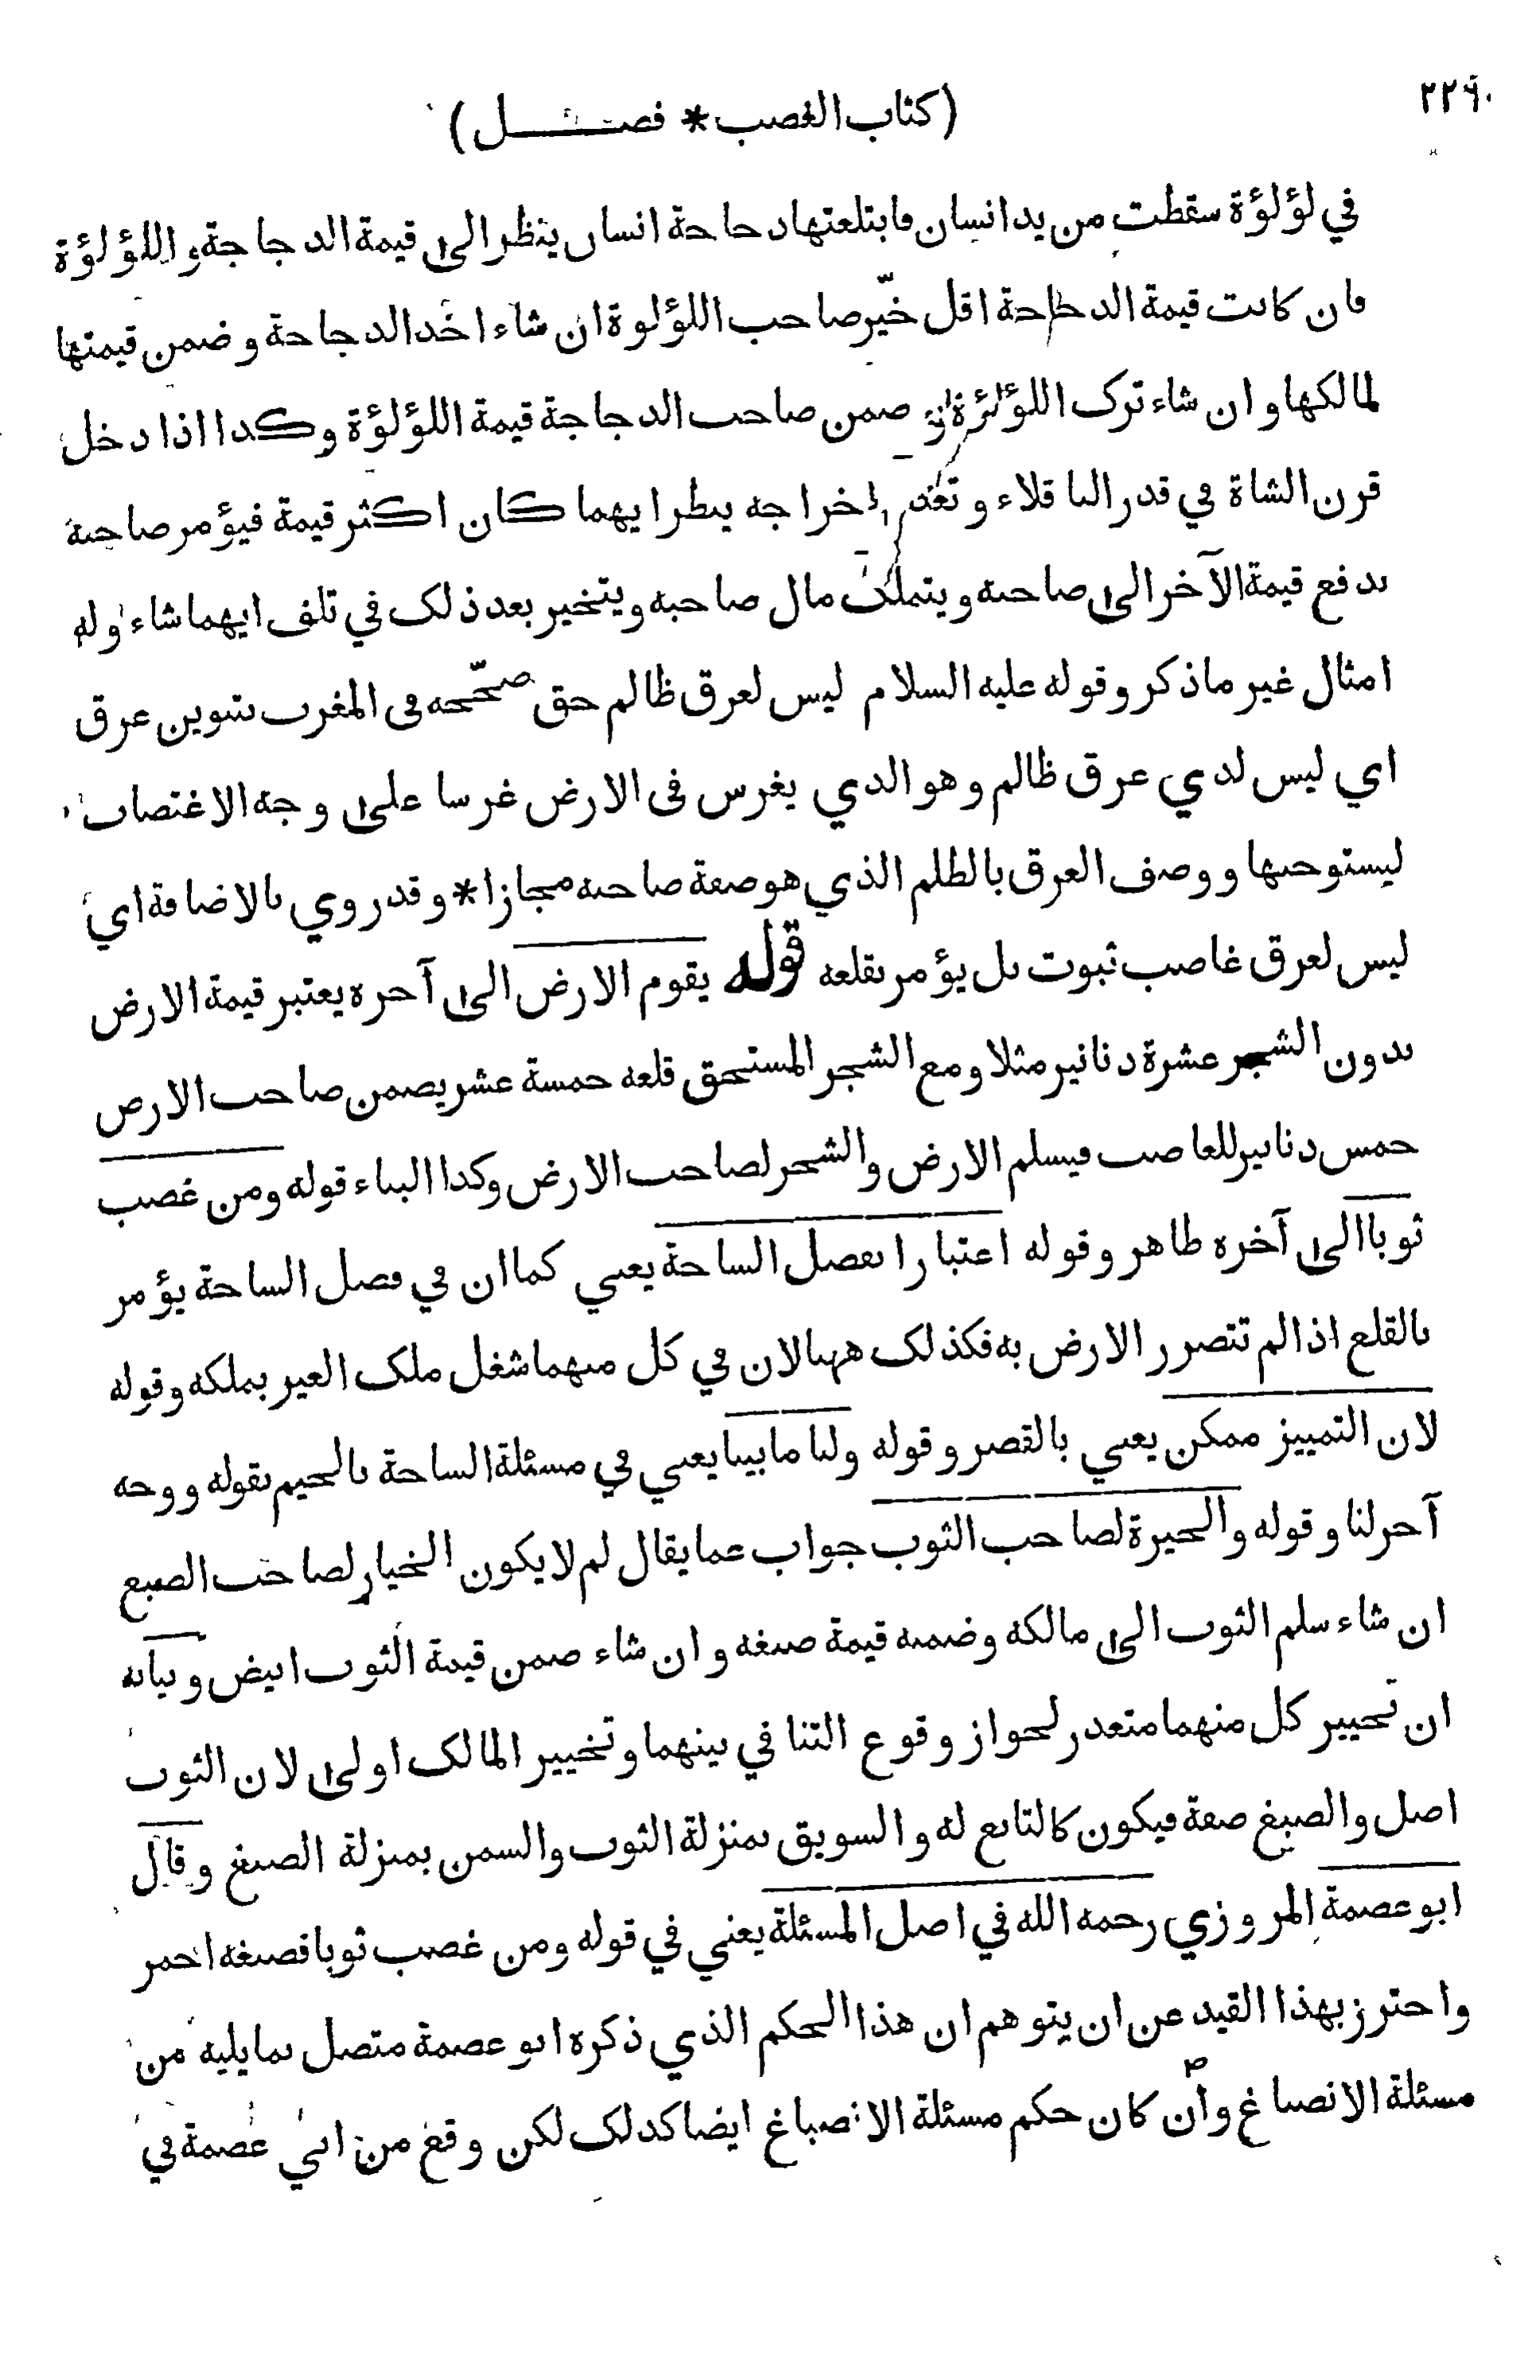 ٢٢٦
(كتاب الغصب * فصل)
في لؤلؤة سقطت من يد انسان فابتلعتها دجاجة انسان ينظر الى قيمة الدجاجة واللؤلؤة
فان كانت قيمة الدجاجة اقل خيّر صاحب اللؤلوة ان شاء اخذ الدجاجة وضمن قيمتها
لمالكها وان شاء ترك اللؤلؤة و ضمن صاحب الدجاجة قيمة اللؤلؤة وكذا اذا دخل
قرن الشاة في قدر الباقلاء وتعذر اخراجه ينظر ايهما كان اكثر قيمة فيؤمر صاحبه
بدفع قيمة الآخر الى صاحبه ويتملك مال صاحبه ويتخير بعد ذلك في تلف ايهما شاء وله
امثال غير ما ذكر وقوله عليه السلام ليس لعرق ظالم حق صحّحه في المغرب بتنوين عرق
اي ليس لذي عرق ظالم وهو الذي يغرس في الارض غرسا على وجه الاغتصاب
ليستوجبها ووصف العرق بالظلم الذي هو صفة صاحبه مجازا * وقد روي بالاضافة اي
ليس لعرق غاصب ثبوت بل يؤمر بقلعه قوله يقوم الارض الى آخره يعتبر قيمة الارض
بدون الشجر عشرة دنانير مثلا ومع الشجر المستحق قلعه خمسة عشر يضمن صاحب الارض
خمس دنانير للغاصب فيسلم الارض والشجر لصاحب الارض وكذا البناء قوله ومن غصب
ثوبا الى آخره ظاهر وقوله اعتبارا بفصل الساحة يعني كما ان في فصل الساحة يؤمر
بالقلع اذا لم تتضرر الارض به فكذلك ههنا لان في كل منهما شغل ملك الغير بملكه وقوله
لان التمييز ممكن يعني بالقصر وقوله ولنا ما بينا يعني في مسئلة الساحة بالجيم بقوله ووجه
آخر لنا وقوله والخيرة لصاحب الثوب جواب عما يقال لم لا يكون الخيار لصاحب الصبغ
ان شاء سلم الثوب الى مالكه وضمنه قيمة صبغه وان شاء ضمن قيمة الثوب ابيض وبيانه
ان تخيير كل منهما متعذر لجواز وقوع التنافي بينهما وتخيير المالك اولى لان الثوب
اصل والصبغ صفة فيكون كالتابع له والسويق بمنزلة الثوب والسمن بمنزلة الصبغ وقال
ابو عصمة المروزي رحمه الله في اصل المسئلة يعني في قوله ومن غصب ثوبا فصبغه احمر
واحترز بهذا القيد عن ان يتوهم ان هذا الحكم الذي ذكره ابو عصمة متصل بما يليه من
مسئلة الانصباغ وان كان حكم مسئلة الانصباغ ايضا كذلك لكن وقع من ابي عصمة في